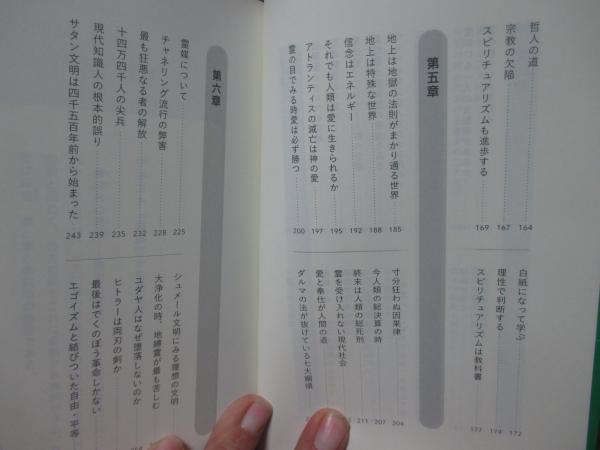 哲人の道 164
宗教の欠陥 167
スピリチュアリズムも進歩する 169
白紙になって学ぶ 172
理性で判断する 174
スピリチュアリズムは教科書 177
第五章
地上は地獄の法則がまかり通る世界 185
地上は特殊な世界 188
信念はエネルギー 192
それでも人類は愛に生きられるか 195
アトランティスの滅亡は神の愛 197
霊の目でみる時愛は必ず勝つ 200
寸分狂わぬ因果律 204
今人類の総決算の時 207
終末は人類の総死刑 211
霊を受け入れない現代社会
愛と奉仕が人間の道
ダルマの法が抜けている七大綱領
第六章
霊媒について 225
チャネリング流行の弊害 228
最も狂悪なる者の解放 232
十四万四千人の尖兵 235
現代知識人の根本的誤り 239
サタン文明は四千五百年前から始まった 243
シュメール文明にみる理想の文明
大浄化の時、地縛霊が最も苦しむ
ユダヤ人はなぜ堕落しないのか
ヒトラーは両刃の剣か
最後はでくのぼう革命しかない
エゴイズムと結びついた自由・平等